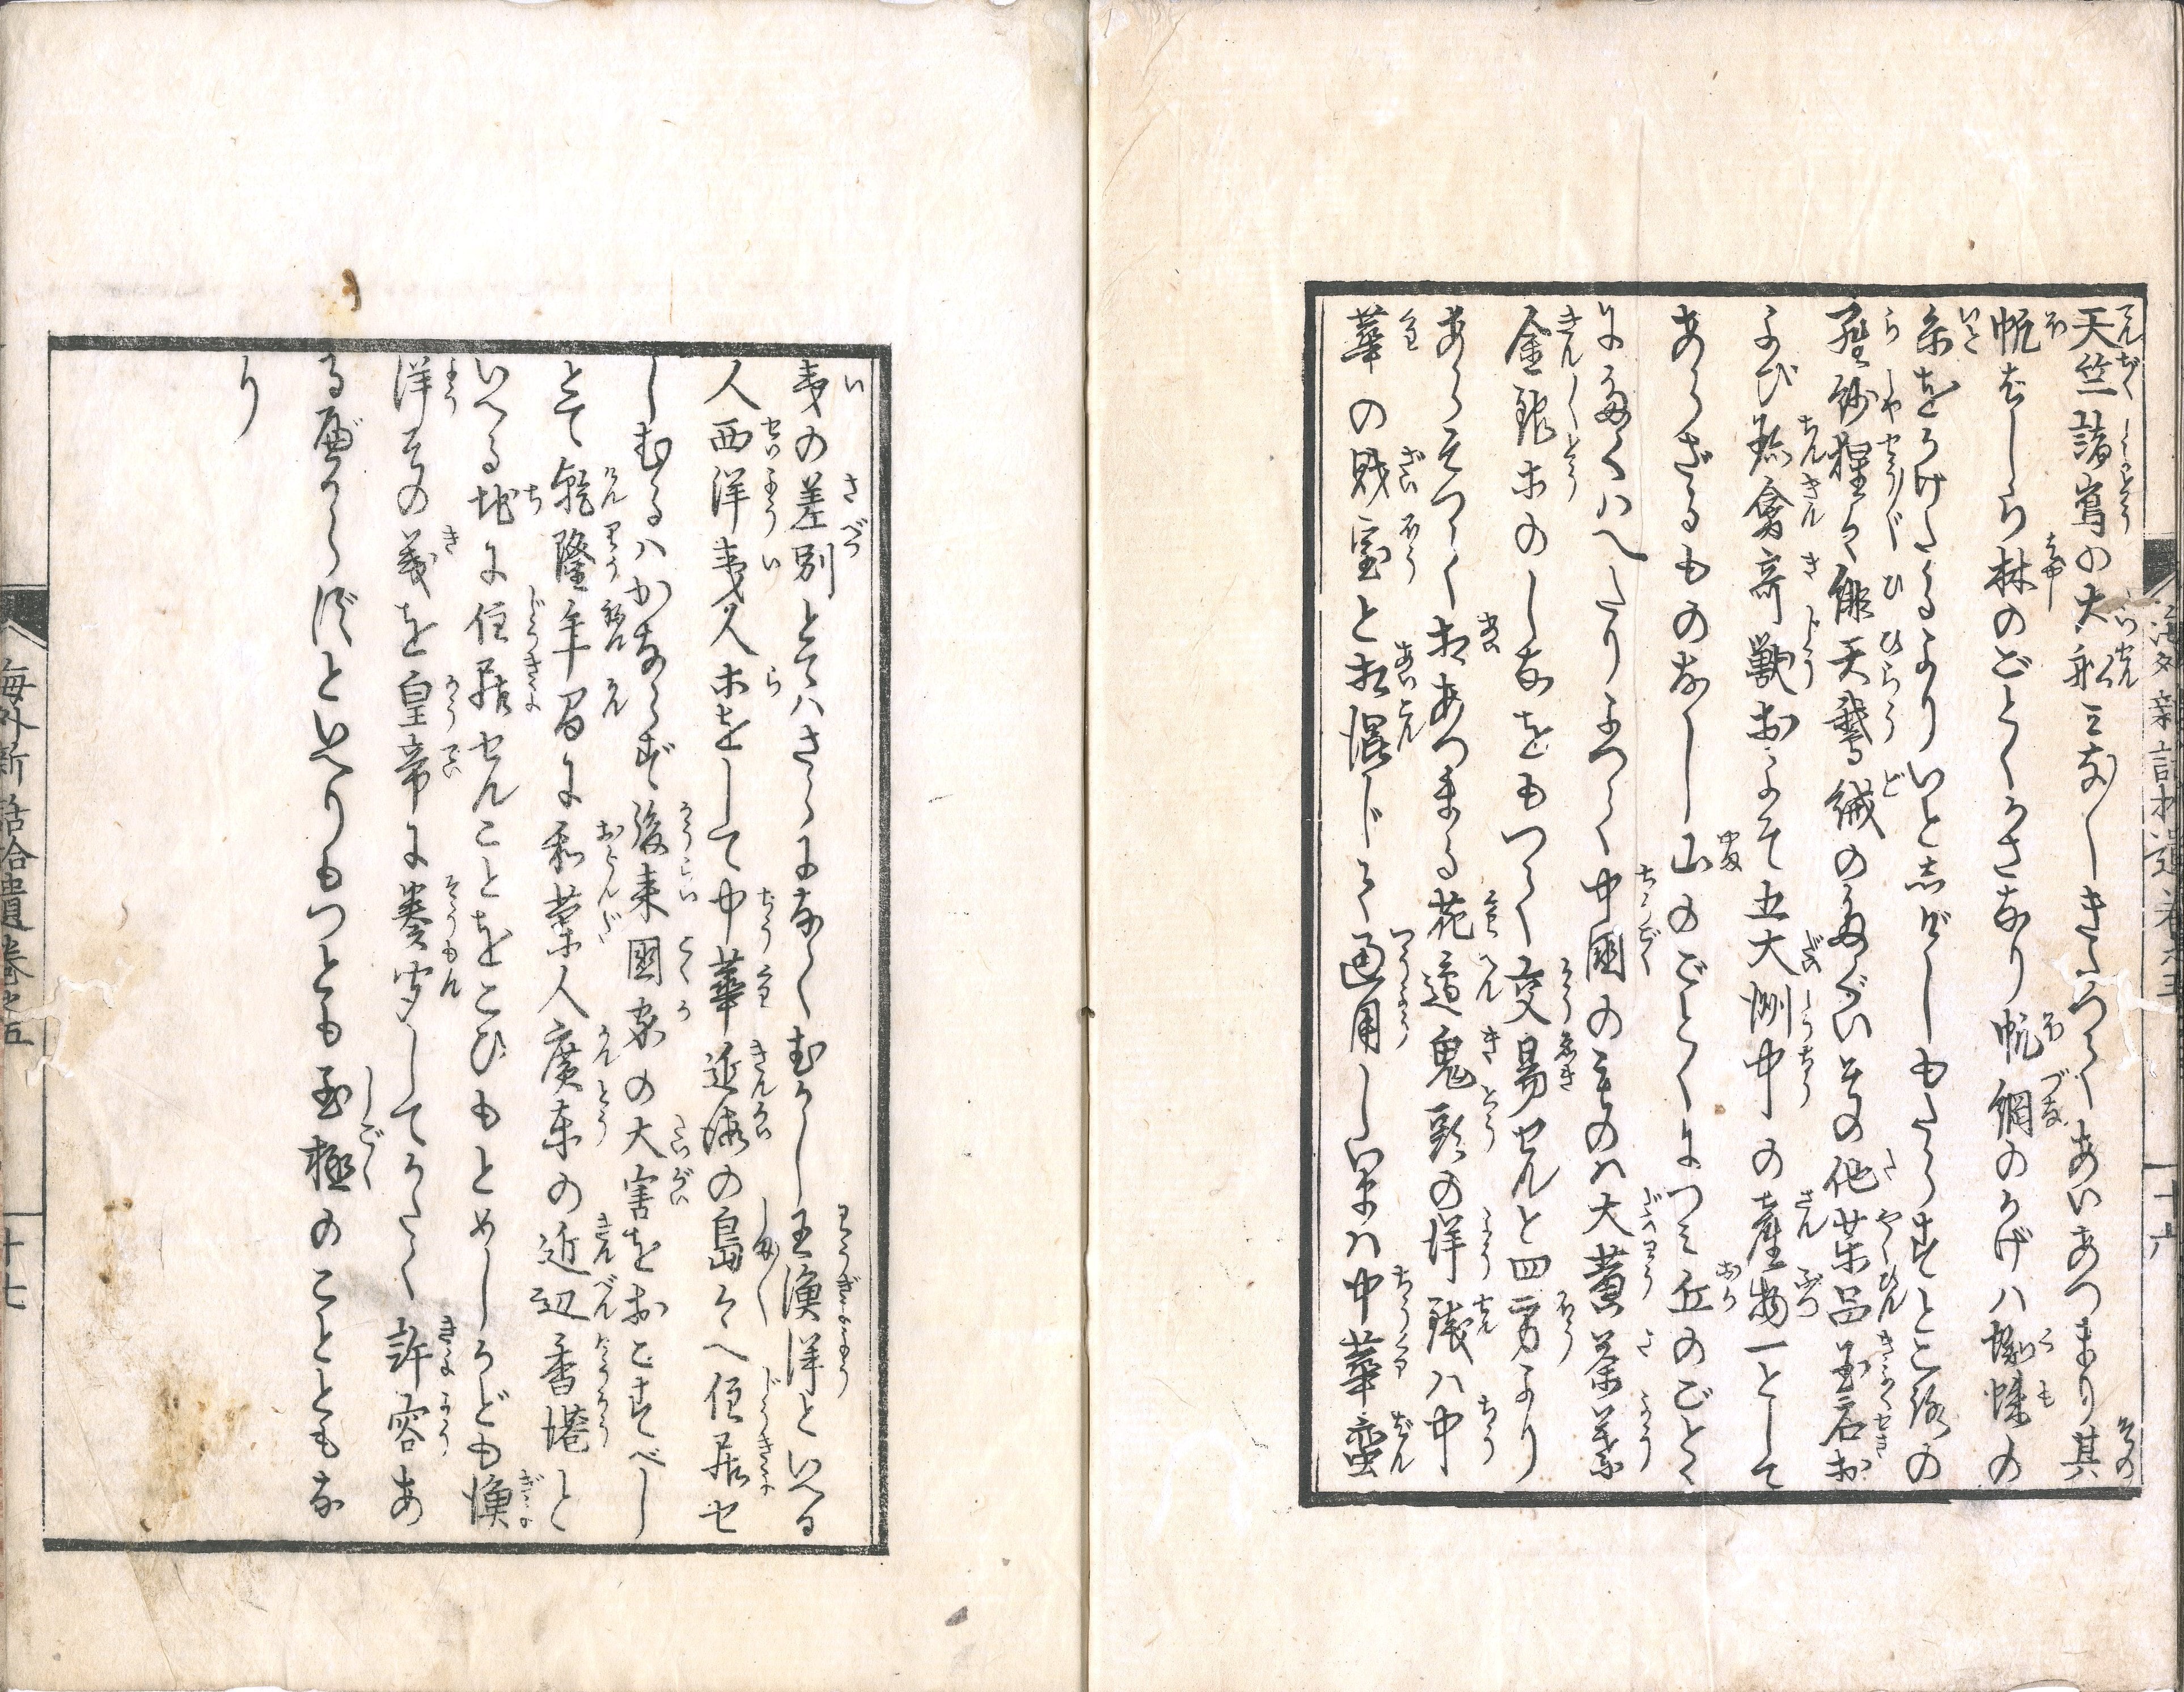 天竺諸島の大船三なしきたつてあいあつまり其
帆ばしら林のごとくかさなり帆綱のかげハ蜘蛛の
糸をかけたるよりいと志げしもたらすところの
羅紗猩々緋天鵞絨のたぐいその他薬品玉石お
よび珎禽奇獣およそ五大洲中の産物一として
あらざるものなし山のごとくにつミ丘のごとく
にたくハへたりよつて中國のものハ大黄茶葉
金銀ホのしなをもつて交易せんと四方より
あらそつて相あつまる花邉鬼頭の洋銭ハ中
華の財宝と相混じて通用し以来ハ中華蛮
海外新話拾遺巻之五
十六
夷の差別とてハさらになくむかし王漁洋といへる
人西洋夷人ホをして中華近海の島々へ住居せ
しむるハかならず後来國家の大害をおこすべし
とて乾隆年間に和蘭人廣東の近辺香港と
いへる地に住居せんことをこひもとめしかども漁
洋その義を皇帝に奏聞してかたく許容あ
る処からずといへりもつとも至極のことともな
り
海外新話拾遺巻之五
十七